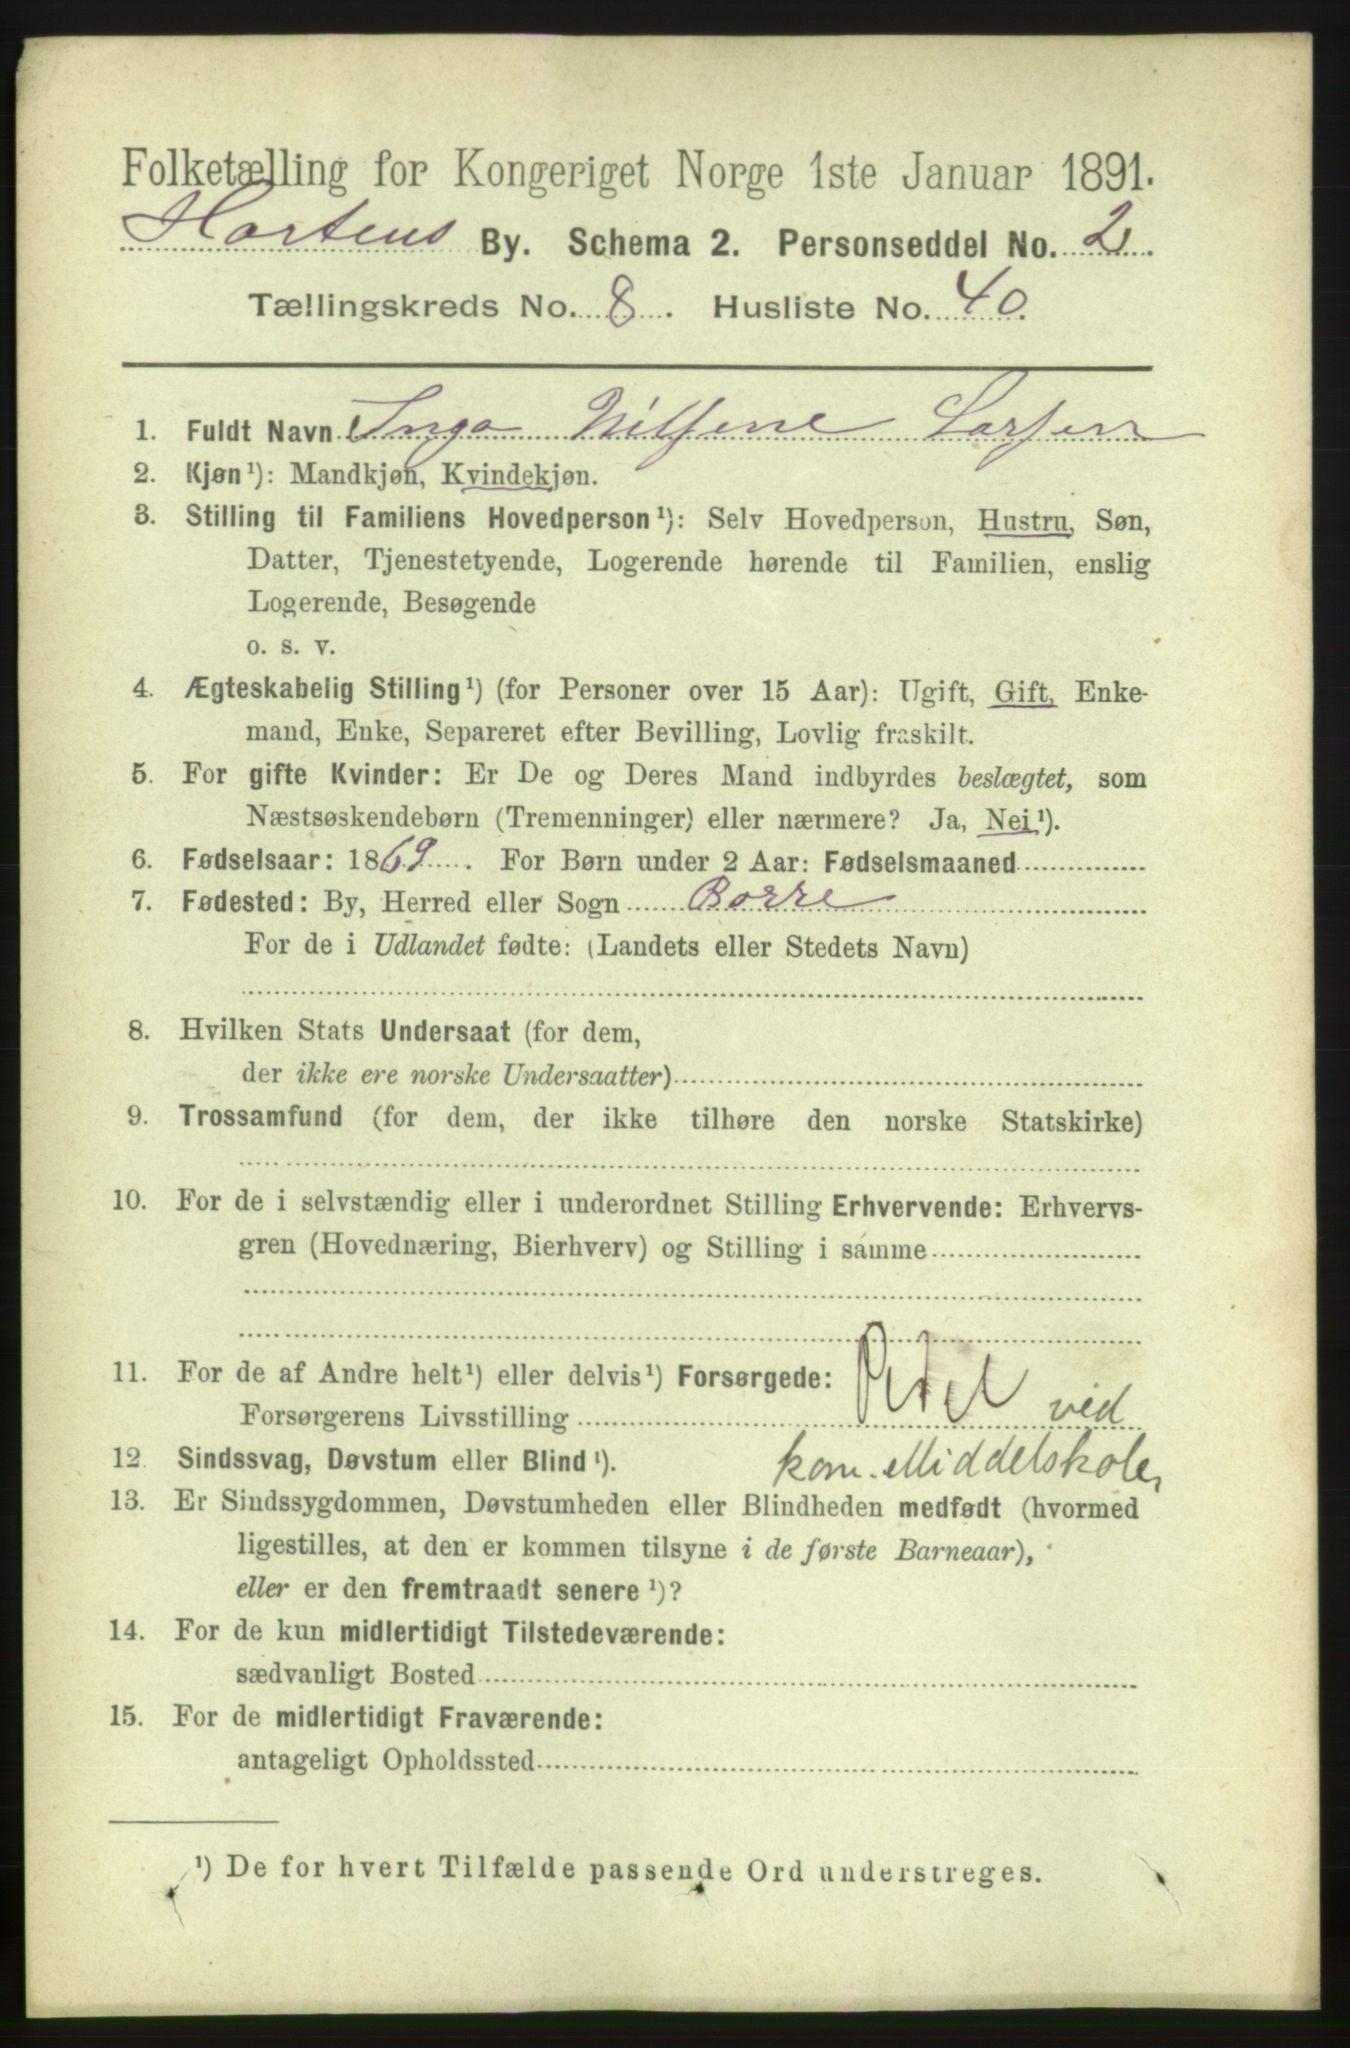 Folketælling for Kongeriget Norge 1ste Januar 1891.
Hortens By. Schema 2. Personseddel No. 2.
Tællingskreds No. 8. Husliste No. 40.
1. Fuldt Navn Inga Nilsene Larsen
2. Kjøn¹): Mandkjøn, Kvindekjøn.
3. Stilling til Familiens Hovedperson¹): Selv Hovedperson, Hustru, Søn,
Datter, Tjenestetyende, Logerende hørende til Familien, enslig
Logerende, Besøgende
o. s. v.
4. Ægteskabelig Stilling¹) (for Personer over 15 Aar): Ugift, Gift, Enke-
mand, Enke, Separeret efter Bevilling, Lovlig fraskilt.
5. For gifte Kvinder: Er De og Deres Mand indbyrdes beslægtet, som
Næstsøskendebørn (Tremenninger) eller nærmere? Ja, Nei¹).
6. Fødselsaar: 1869. For Børn under 2 Aar: Fødselsmaaned
7. Fødested: By, Herred eller Sogn Borre
For de i Udlandet fødte: (Landets eller Stedets Navn)
8. Hvilken Stats Undersaat (for dem,
der ikke ere norske Undersaatter)
9. Trossamfund (for dem, der ikke tilhøre den norske Statskirke)
10. For de i selvstændig eller i underordnet Stilling Erhvervende: Erhvervs-
gren (Hovednæring, Bierhverv) og Stilling i samme
11. For de af Andre helt¹) eller delvis¹) Forsørgede:
Forsørgerens Livsstilling ved
12. Sindssvag, Døvstum eller Blind¹). kom. Middelskole,
13. Er Sindssygdommen, Døvstumheden eller Blindheden medfødt (hvormed
ligestilles, at den er kommen tilsyne i de første Barneaar),
eller er den fremtraadt senere¹)?
14. For de kun midlertidigt Tilstedeværende:
sædvanligt Bosted
15. For de midlertidigt Fraværende:
antageligt Opholdssted
¹) De for hvert Tilfælde passende Ord understreges.